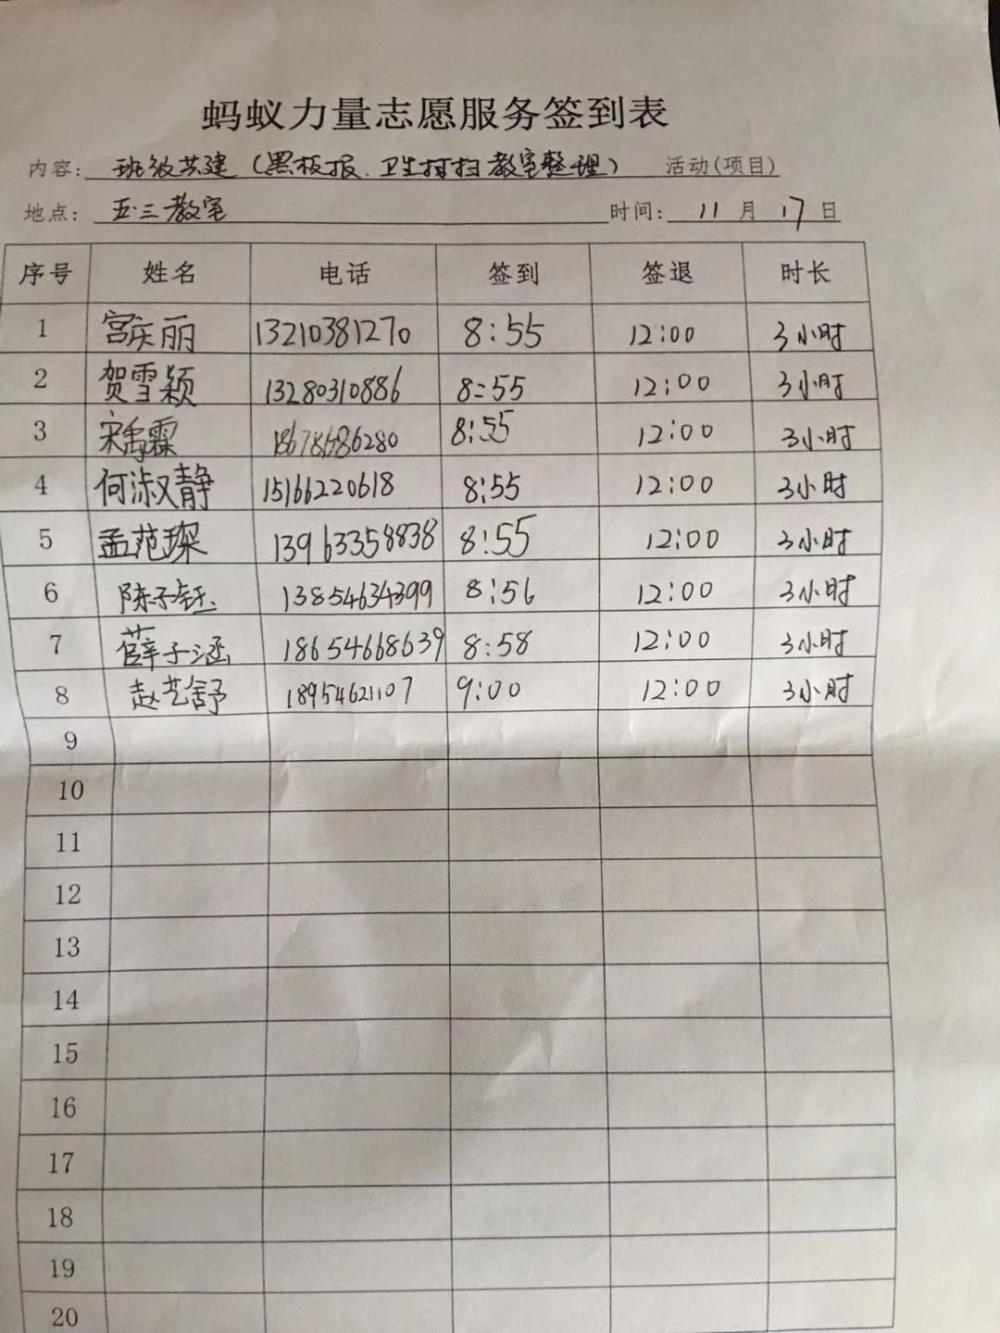 蚂蚁力量志愿服务签到表
内容: 班级共建(黑板报、卫生打扫教室整理) 活动(项目)
地点: 五·三教室 时间: 11 月 17 日
序号 姓名 电话 签到 签退 时长
1 宫庆丽 13210381270 8:55 12:00 3小时
2 贺雪颖 13280310886 8:55 12:00 3小时
3 宋禹霖 18678686280 8:55 12:00 3小时
4 何淑静 15166220618 8:55 12:00 3小时
5 孟范琛 13963358838 8:55 12:00 3小时
6 陈子钰 13854634399 8:56 12:00 3小时
7 薛子涵 18654668639 8:58 12:00 3小时
8 赵艺舒 18954621107 9:00 12:00 3小时
9
10
11
12
13
14
15
16
17
18
19
20